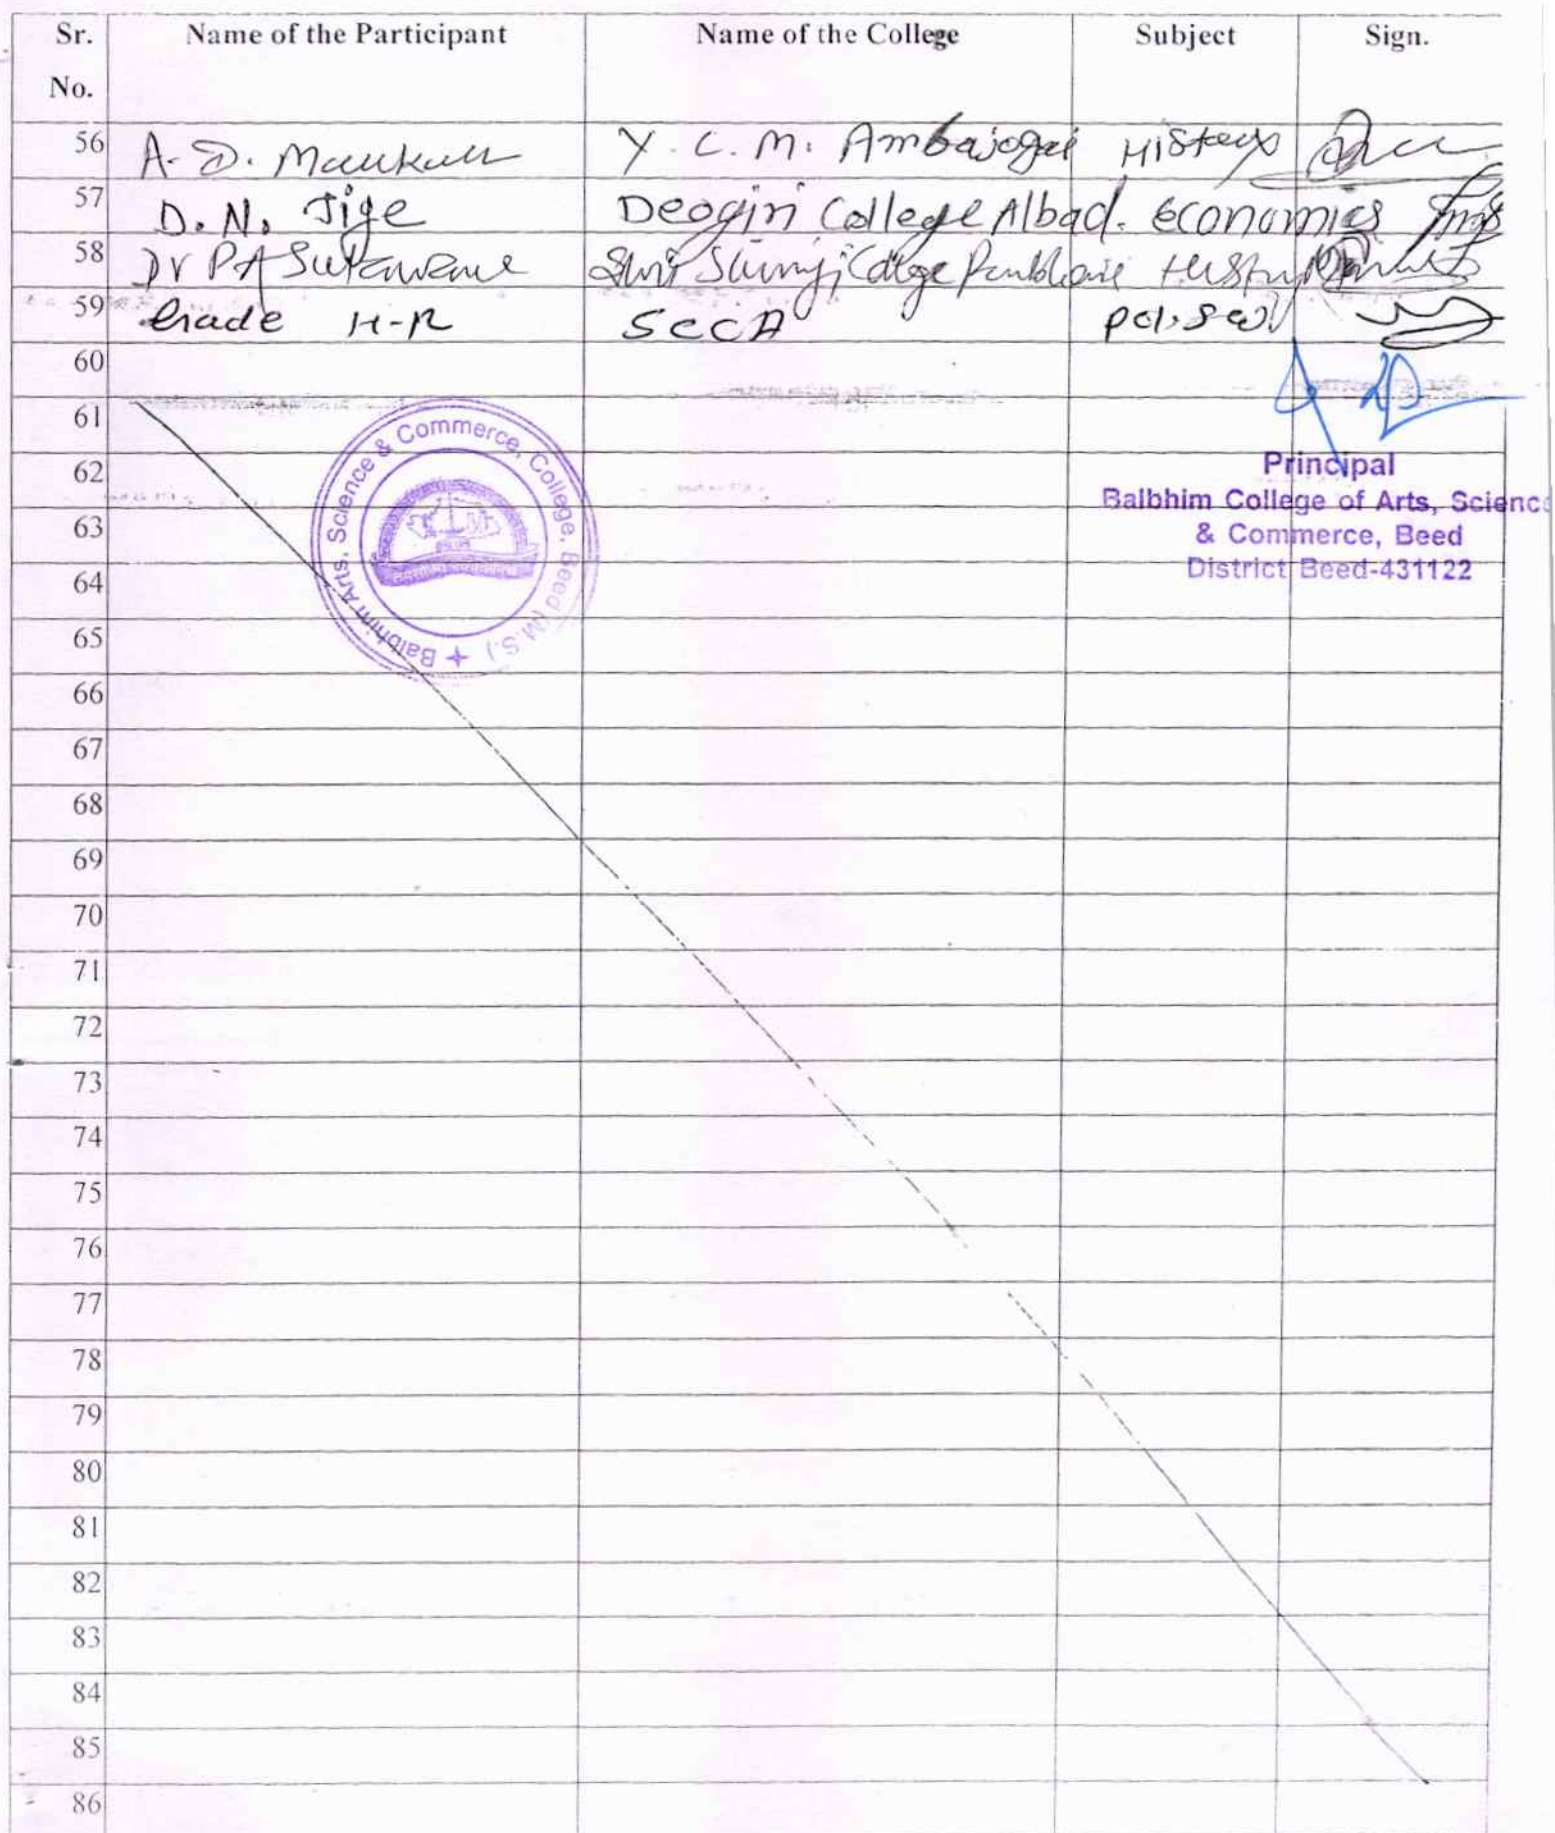 Sr. No. Name of the Participant Name of the College Subject Sign.
56 A. D. Y. C. M. Ambajogai History
57 D. N. Jige Deogiri College A'bad. Economics
58 Dr P A College History
59 H-R SCCA Pol. Sci
60
61
62
63
64
65
66
67
68
69
70
71
72
73
74
75
76
77
78
79
80
81
82
83
84
85
86
Balbhim Arts, Science & Commerce, College, Beed (M.S.)
Principal
Balbhim College of Arts, Science
& Commerce, Beed
District Beed-431122